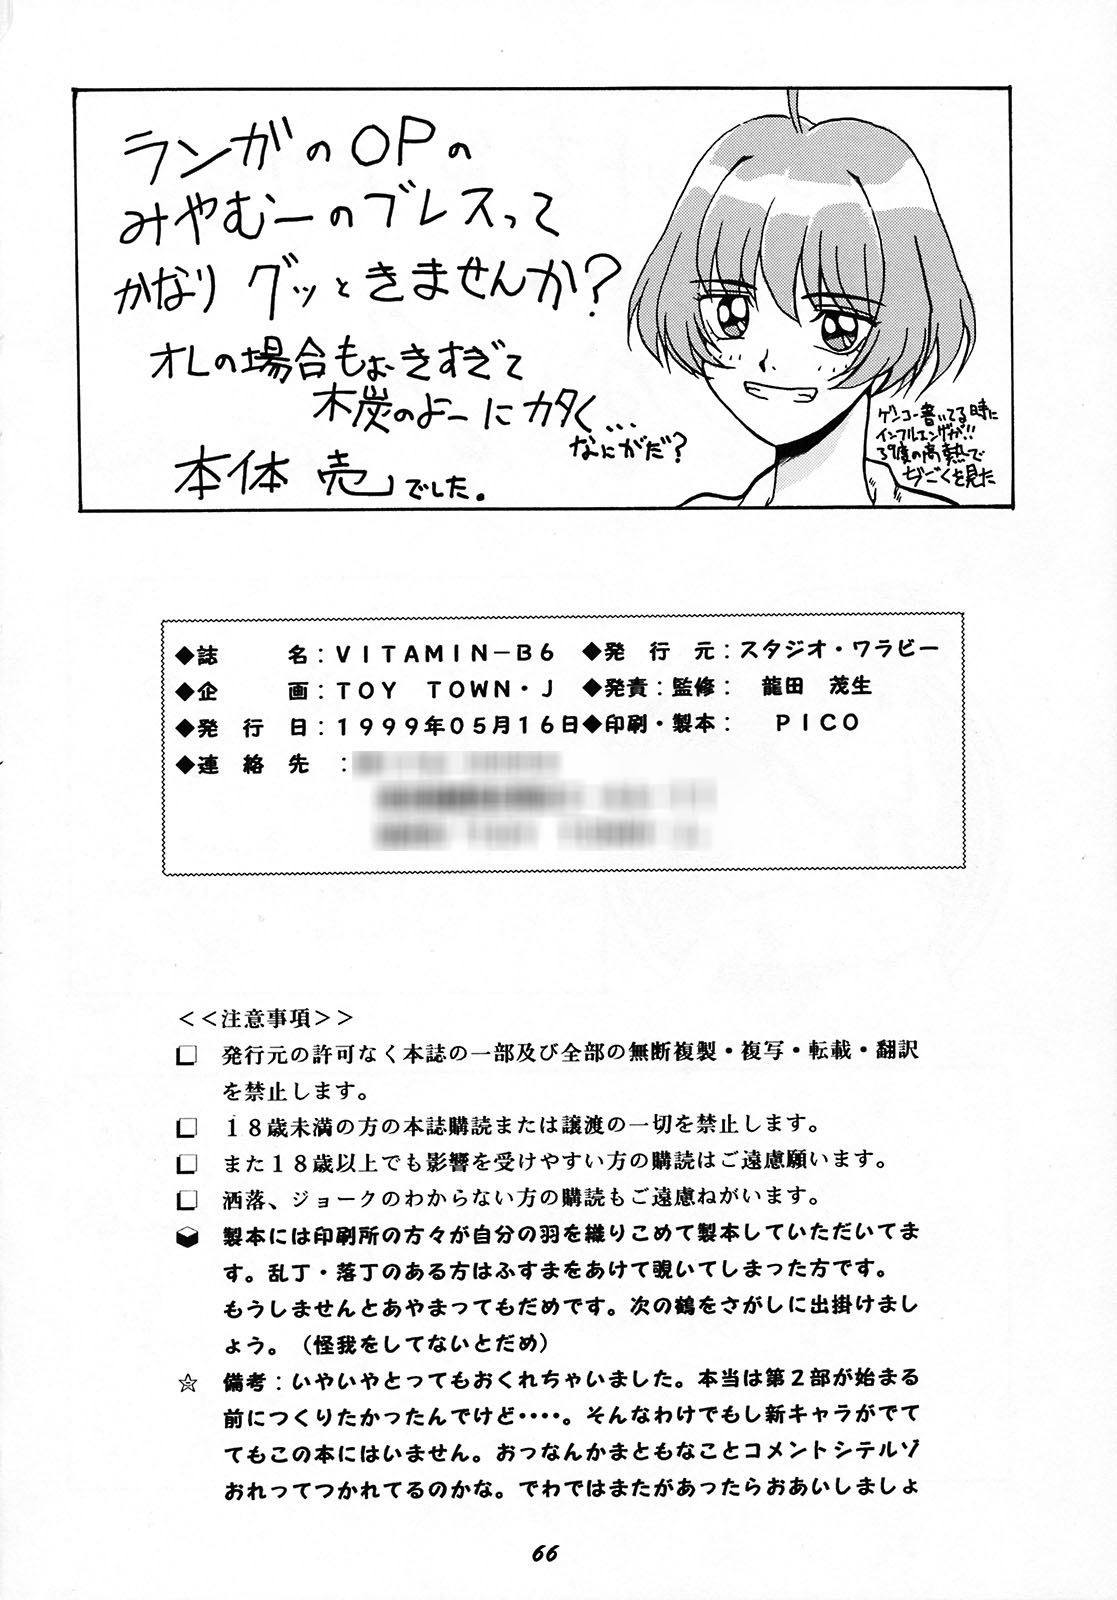 ランガのOPの
みやむーのブレスって
かなり グッときませんか？
オレの場合もぉきすぎて
木炭のよーにカタく...
なにがだ？
本体 売でした。
ゲンコー書いてる時に
インフルエンザが!!
39度の高熱で
ぢごくを見た
◆誌　　名：ＶＩＴＡＭＩＮ－Ｂ６　◆発　行　元：スタジオ・ワラビー
◆企　　画：ＴＯＹ　ＴＯＷＮ・Ｊ　◆発責：監修：　龍田　茂生
◆発　行　日：１９９９年０５月１６日◆印刷・製本：　ＰＩＣＯ
◆連　絡　先　：
＜＜注意事項＞＞
□　発行元の許可なく本誌の一部及び全部の無断複製・複写・転載・翻訳
を禁止します。
□　１８歳未満の方の本誌購読または譲渡の一切を禁止します。
□　また１８歳以上でも影響を受けやすい方の購読はご遠慮願います。
□　洒落、ジョークのわからない方の購読もご遠慮ねがいます。
製本には印刷所の方々が自分の羽を織りこめて製本していただいてま
す。乱丁・落丁のある方はふすまをあけて覗いてしまった方です。
もうしませんとあやまってもだめです。次の鶴をさがしに出掛けまし
ょう。（怪我をしてないとだめ）
☆　備考：いやいやとってもおくれちゃいました。本当は第２部が始まる
前につくりたかったんでけど・・・・。そんなわけでもし新キャラがでて
てもこの本にはいません。おっなんかまともなことコメントシテルゾ
おれってつかれてるのかな。でわではまたがあったらおあいしましょ
66